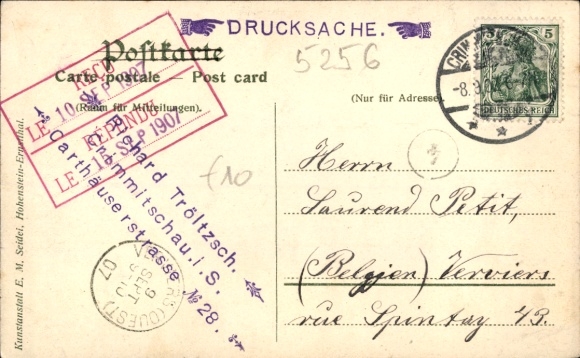 DRUCKSACHE.
Postkarte
Carte postale — Post card
(Raum für Mitteilungen).
(Nur für Adresse)
5256
5
DEUTSCHES REICH
REÇU
LE 10 SEP 1907
RÉPONDU
LE 1 SEP 1907
Richard Tröltzsch.
Crimmitschau.i.S.
Carthäuserstrasse № 28.
f10
(OUEST)
9
SEPT
07
Herrn
Laurend Petit,
(Belgien) Verviers
rue Spintay 43
Kunstanstalt E. M. Seidel, Hohenstein-Ernstthal.